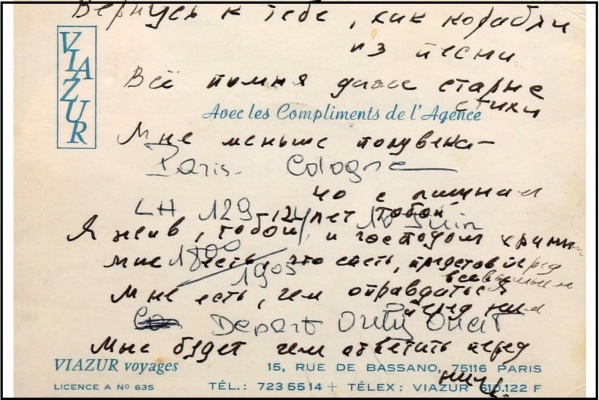 Вернусь к тебе, как корабли
из песни
VIAZUR
Всё помня даже старые
стихи
Avec les Compliments de l'Agence
Мне меньше полувека –
Paris - Cologne
40 с лишним
LH 129 12 лет тобой
10 Juin
Я жив, тобой и господом храним
1800
Мне есть, что спеть, представ перед
всевышним
1905
Мне есть, чем оправдаться
перед ним
Depart Orly Ouest
Мне будет чем ответить перед
ним.
VIAZUR voyages
LICENCE A N° 635
15, RUE DE BASSANO, 75116 PARIS
TÉL.: 723 55 14 + TÉLEX: VIAZUR 610.122 F